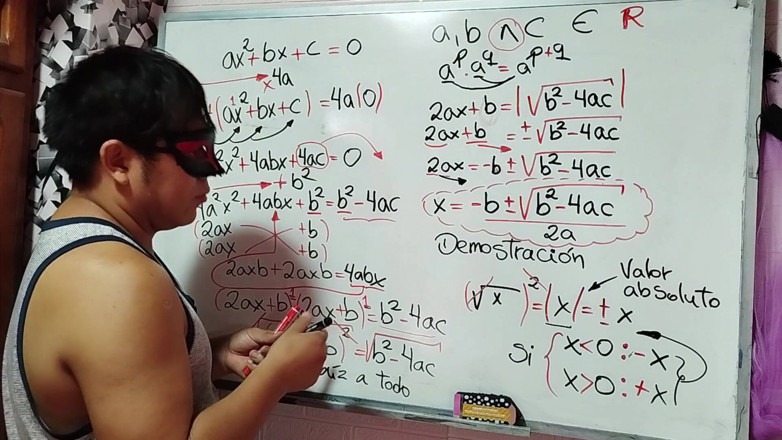 ax² + bx + c = 0
x 4a
(ax² + bx + c) = 4a(0)
x² + 4abx + 4ac = 0
+ b²
4a²x² + 4abx + b² = b² - 4ac
(2ax + b)
(2ax + b)
2axb + 2axb = 4abx
(2ax + b)¹ (2ax + b)¹ = b² - 4ac
b)² = √b² - 4ac
a todo
a, b ∧ c ∈ R
a^p · a^q = a^(p+q)
2ax + b = |√b² - 4ac|
2ax + b = ± √b² - 4ac
2ax = -b ± √b² - 4ac
x = -b ± √b² - 4ac
2a
Demostración
(√x)² = |x| = ± x
Valor
absoluto
Si { x < 0 : - x
x > 0 : + x }